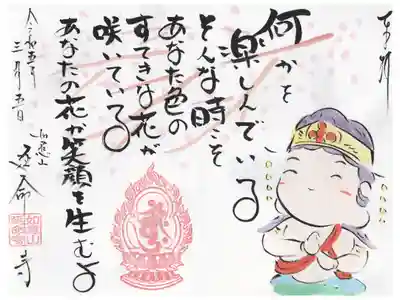 奉拝
何かを
楽しんでいる
そんな時こそ
あなた色の
すてきな花が
咲いている
あなたの花が笑顔を生むよ
令和五年
三月五日
如意山
命寺